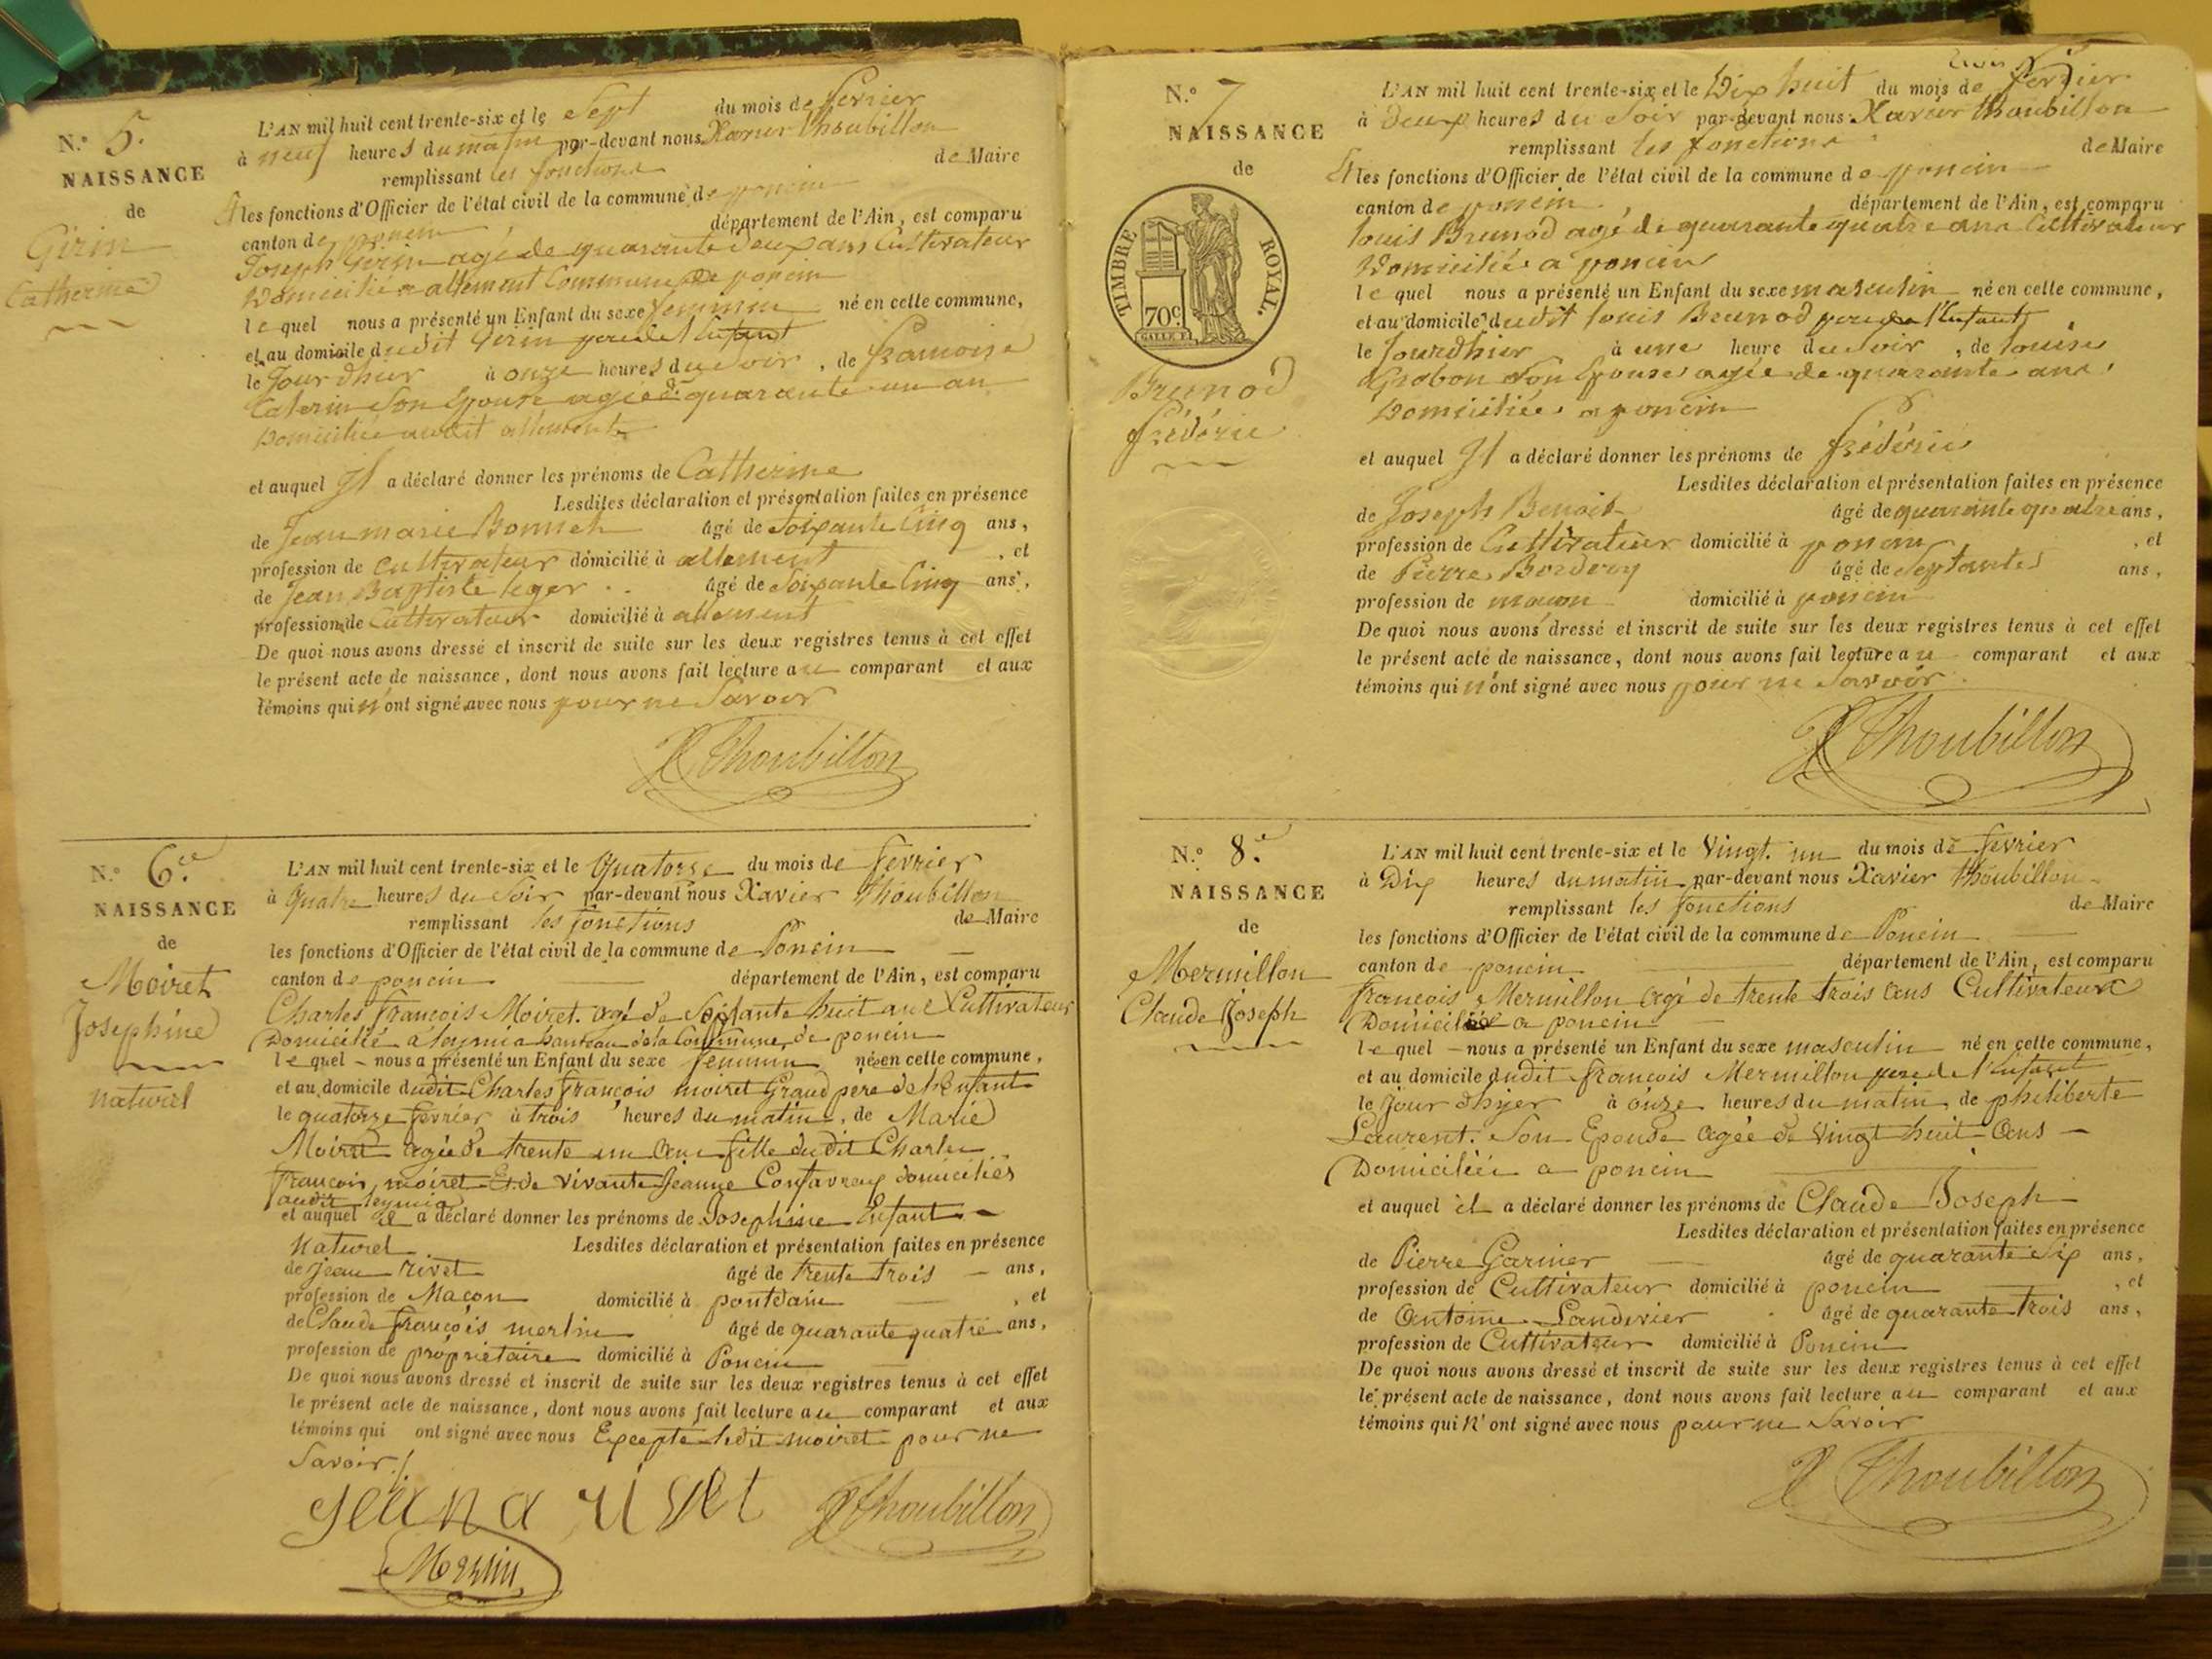 N.º 5.
NAISSANCE
de
Girin
Catherine
L'AN mil huit cent trente-six et le Sept du mois de fevrier
à neuf heures du matin par-devant nous Xavier Thoubillon
remplissant les fonctions de Maire
les fonctions d'Officier de l'état civil de la commune de poncin
canton de poncin département de l'Ain, est comparu
Joseph Girin agé de quarante deux ans Cultivateur
Domicilié a allement Commune de poncin
le quel nous a présenté un Enfant du sexe feminin né en cette commune,
et au domicile dudit Girin pere de l'enfant
le Jour dhier à onze heures du Soir, de francoise
Son Epouse agée de quarante un an
Domiciliée audit allement
et auquel Il a déclaré donner les prénoms de Catherine
Lesdites déclaration et présentation faites en présence
de Jean marie Bonnet âgé de Soixante Cinq ans,
profession de cultivateur domicilié à allement, et
de Jean Baptiste leger âgé de Soixante Cinq ans,
profession de Cultivateur domicilié à allement
De quoi nous avons dressé et inscrit de suite sur les deux registres tenus à cet effet
le présent acte de naissance, dont nous avons fait lecture au comparant et aux
témoins qui n'ont signé avec nous pour ne Savoir
X Thoubillon
N.º 6.e
NAISSANCE
de
Moiret
Josephine
naturel
L'AN mil huit cent trente-six et le Quatorze du mois de fevrier
à Quatre heures du Soir par-devant nous Xavier Thoubillon
remplissant les fonctions de Maire
les fonctions d'Officier de l'état civil de la commune de Poncin
canton de poncin département de l'Ain, est comparu
Charles françois Moiret agé de Soixante huit ans Cultivateur
Domicilié a leymia hameau de la Commune de poncin
le quel nous a présenté un Enfant du sexe feminin né en cette commune,
et au domicile dudit Charles françois moiret Grand pere de l'Enfant
le quatorze fevrier à trois heures du matin, de Marie
Moiret agée de trente un ans fille du dit Charles
francois moiret Et de vivante Jeanne Confavreux domiciliés
audit leymia
et auquel il a déclaré donner les prénoms de Josephine Enfant
Naturel Lesdites déclaration et présentation faites en présence
de Jean rivet âgé de trente trois ans,
profession de Maçon domicilié à pontdain, et
de Claude françois merlin âgé de quarante quatre ans,
profession de propriétaire domicilié à Poncin
De quoi nous avons dressé et inscrit de suite sur les deux registres tenus à cet effet
le présent acte de naissance, dont nous avons fait lecture au comparant et aux
témoins qui ont signé avec nous Excepté ledit moiret pour ne
Savoir
X Thoubillon
Merlin
N.º 7
NAISSANCE
de
TIMBRE ROYAL.
70c.
Brunod
frédéric
L'AN mil huit cent trente-six et le Dix huit du mois de fevrier
à Deux heures du Soir par-devant nous Xavier Thoubillon
remplissant les fonctions de Maire
les fonctions d'Officier de l'état civil de la commune de poncin
canton de poncin, département de l'Ain, est comparu
louis Brunod agé de quarante quatre ans Cultivateur
Domicilié a poncin
le quel nous a présenté un Enfant du sexe masculin né en cette commune,
et au domicile dudit louis Brunod pere de l'Enfant
le Jourdhier à une heure du Soir, de louise
Grobon Son Epouse agée de quarante ans,
Domiciliée a poncin
et auquel Il a déclaré donner les prénoms de frédéric
Lesdites déclaration et présentation faites en présence
de Joseph Benoit âgé de quarante quatre ans,
profession de Cultivateur domicilié à poncin, et
de Pierre âgé de Septante ans,
profession de macon domicilié à poncin
De quoi nous avons dressé et inscrit de suite sur les deux registres tenus à cet effet
le présent acte de naissance, dont nous avons fait lecture au comparant et aux
témoins qui n'ont signé avec nous pour ne Savoir.
X Thoubillon
N.º 8.e
NAISSANCE
de
Mermillon
Claude Joseph
L'AN mil huit cent trente-six et le Vingt un du mois de fevrier
à Dix heures du matin par-devant nous Xavier Thoubillon
remplissant les fonctions de Maire
les fonctions d'Officier de l'état civil de la commune de Poncin
canton de poncin département de l'Ain, est comparu
francois Mermillon agé de trente trois ans Cultivateur
Domicilié a poncin
le quel nous a présenté un Enfant du sexe masculin né en cette commune,
et au domicile dudit francois Mermillon pere de l'Enfant
le Jour dhyer à onze heures du matin, de philiberte
Laurent. Son Epouse agée de Vingt huit ans
Domiciliée a poncin
et auquel il a déclaré donner les prénoms de Claude Joseph
Lesdites déclaration et présentation faites en présence
de Pierre Garnier âgé de quarante Six ans,
profession de Cultivateur domicilié à poncin, et
de Antoine Landivier âgé de quarante trois ans,
profession de Cultivateur domicilié à Poncin
De quoi nous avons dressé et inscrit de suite sur les deux registres tenus à cet effet
le présent acte de naissance, dont nous avons fait lecture au comparant et aux
témoins qui n'ont signé avec nous pour ne Savoir
X Thoubillon